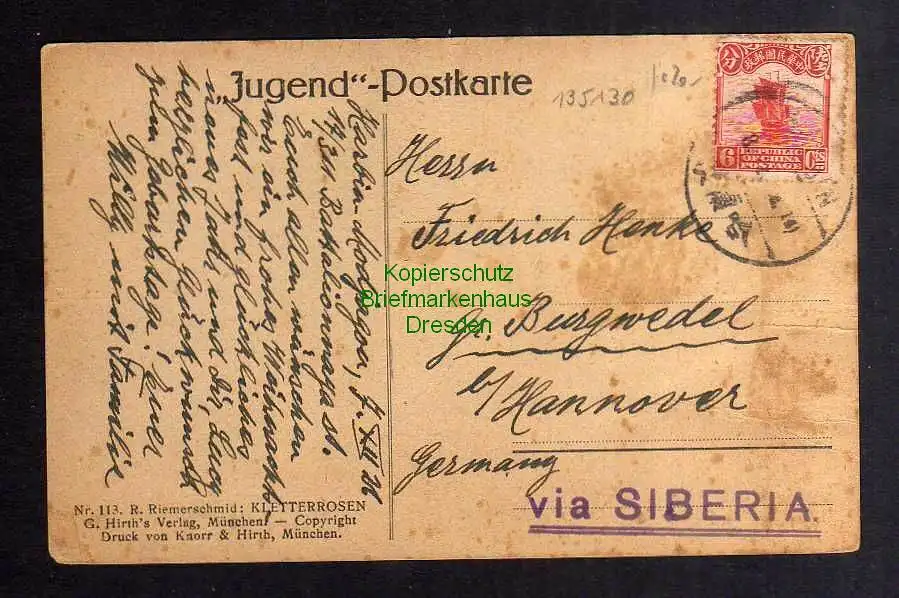 „Jugend“-Postkarte
135130
Herrn
Friedrich Henke
Gr. Burgwedel
b/Hannover
Germany
via SIBERIA.
中華民國郵政
分
陸
6
REPUBLIC
OF CHINA
POSTAGE
Cts
Kopierschutz
Briefmarkenhaus
Dresden
Harbin-Modjagou, 7. XII 26
Battalionnaja st.
Euch allen wünschen
wir ein frohes Weihnachts-
fest und glückliches
neues Jahr und dir, Lucy
herzlichen Glückwunsch
zum Geburtstage! Euer
Willy mit Familie
Nr. 113. R. Riemerschmid: KLETTERROSEN
G. Hirth's Verlag, München. — Copyright
Druck von Knorr & Hirth, München.